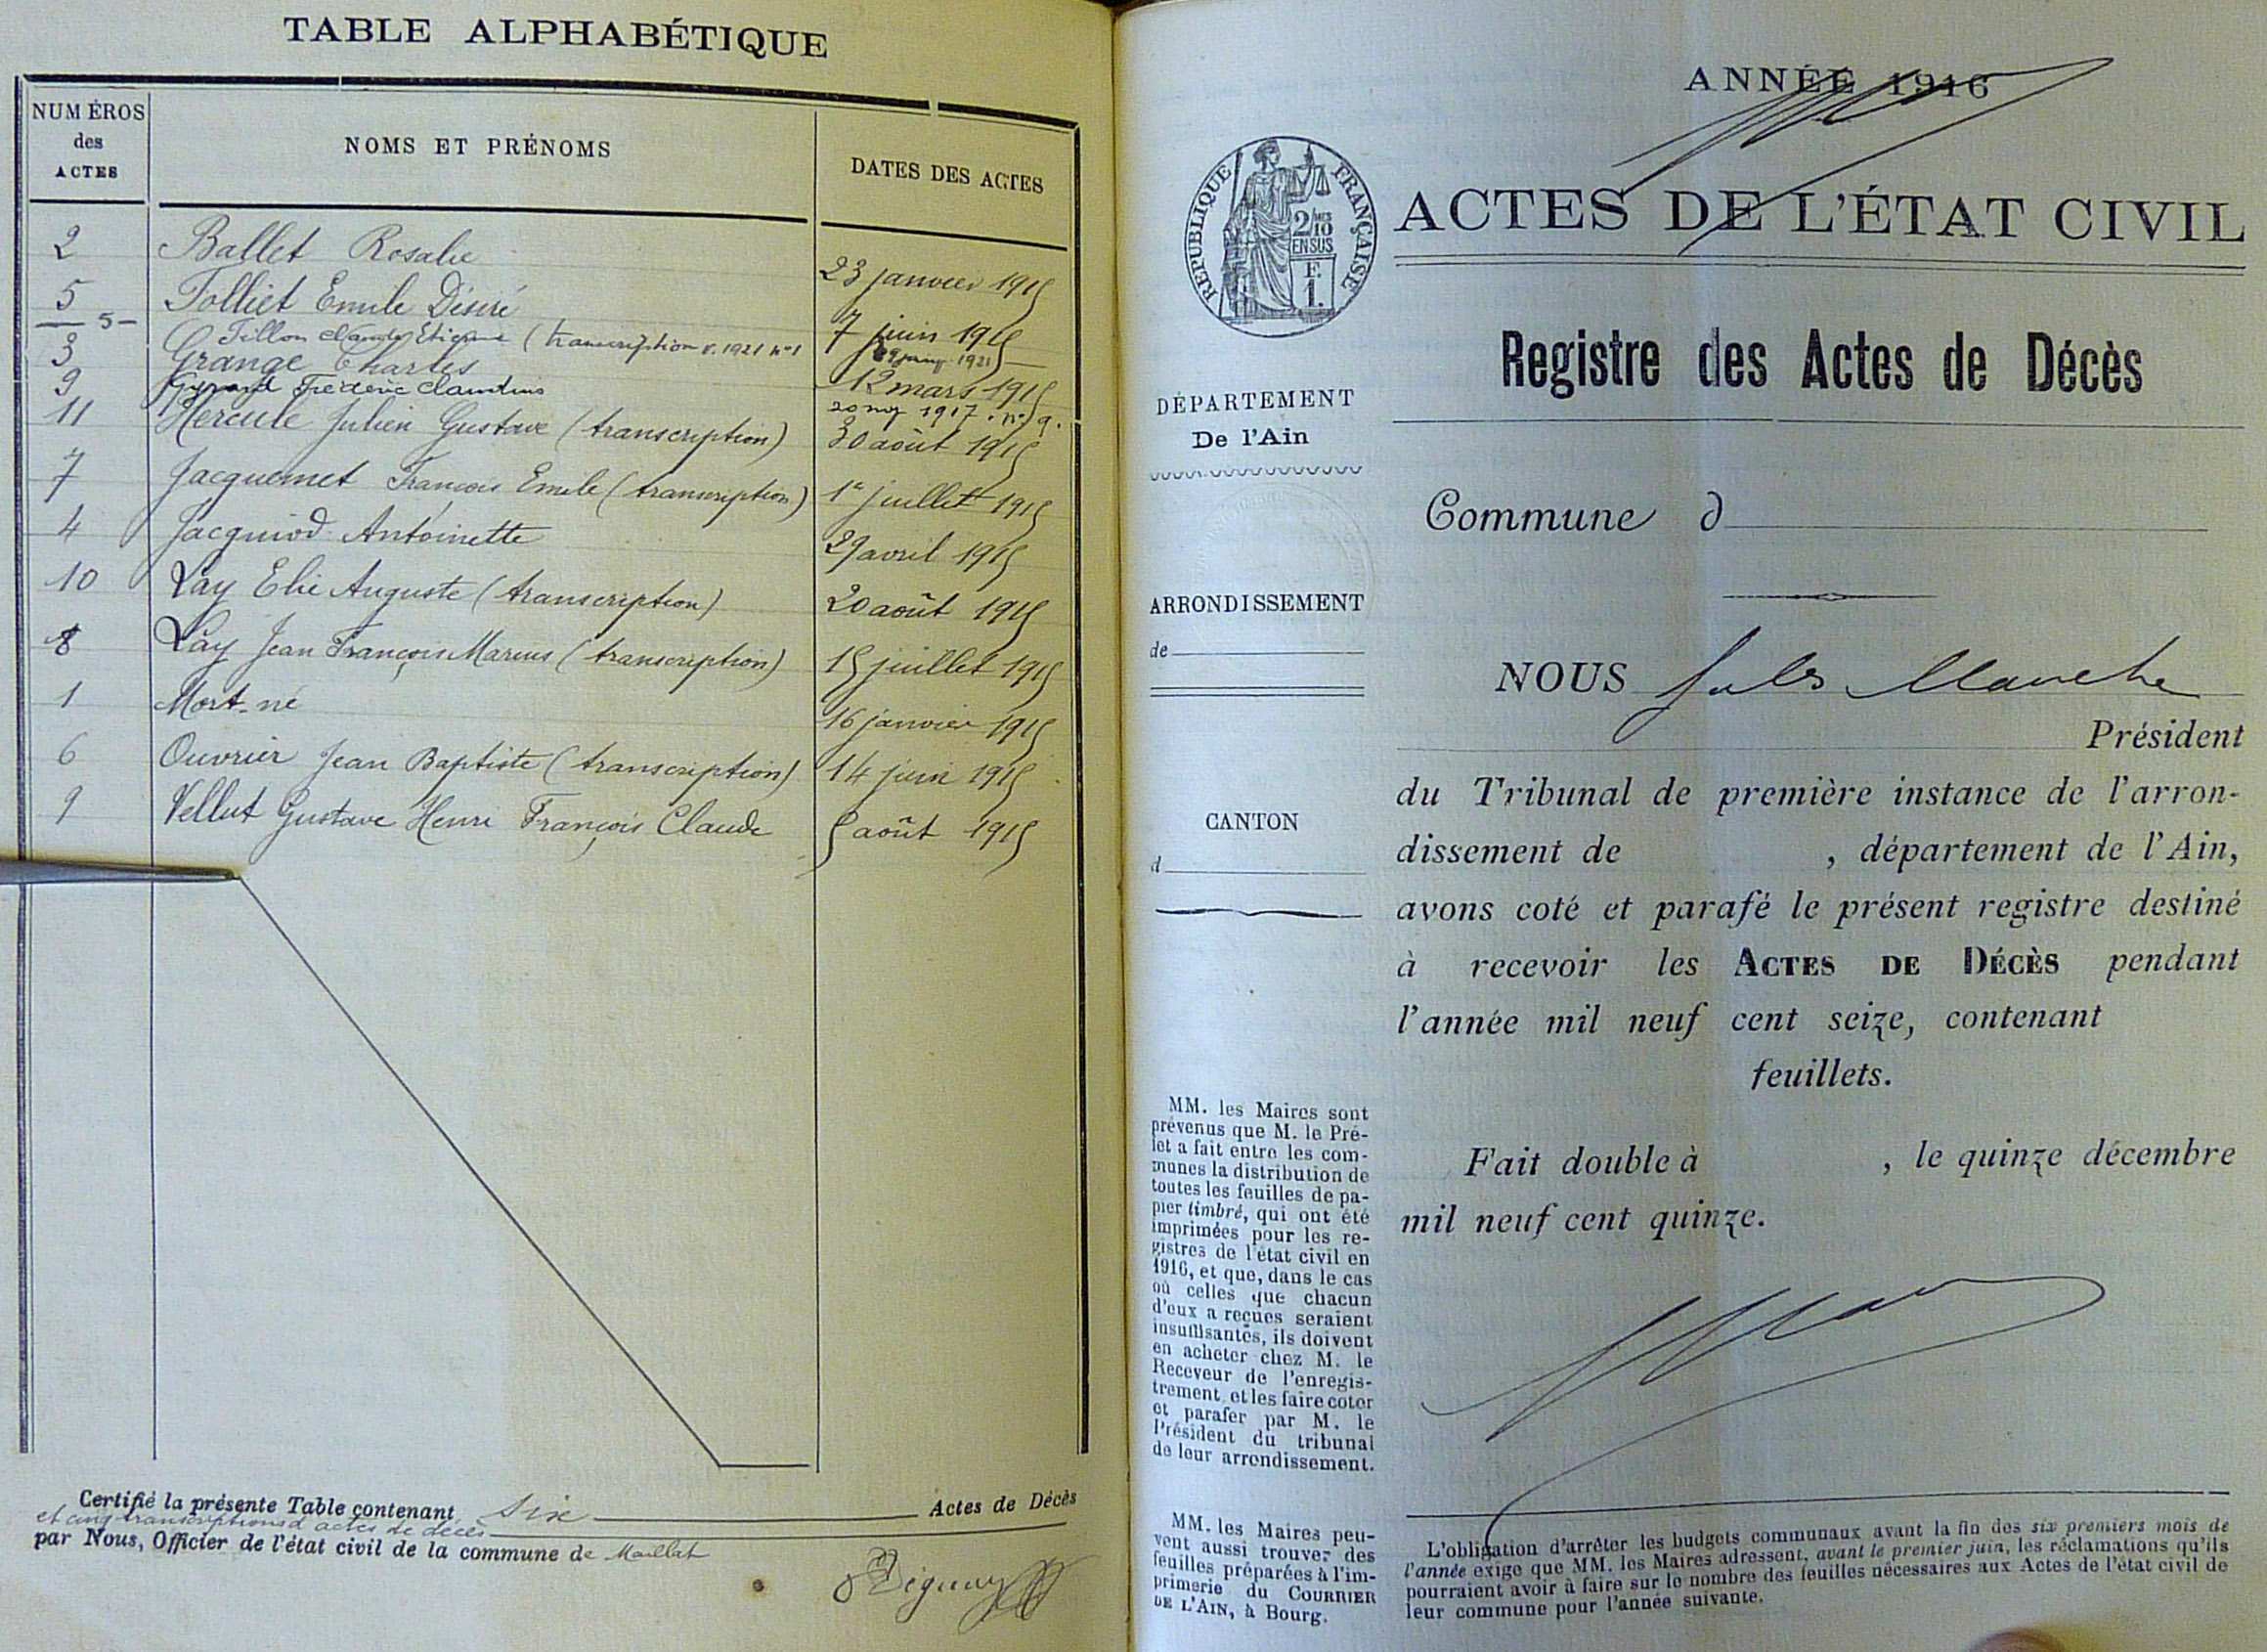 TABLE ALPHABÉTIQUE
NUMÉROS
des
ACTES
NOMS ET PRÉNOMS
DATES DES ACTES
2 Ballet Rosalie 23 janvier 1915
5 Folliet Emile Désiré 7 juin 1915
5 Tillon Claude Etienne (transcription v. 1921 nº 1 1921
3 Grange Charles 12 mars 1915
9 Frédéric Claudius 20 1917. nº 9.
11 Hercule Julien Gustave (transcription) 30 août 1915
7 Jacquemet François Emile (transcription) 1er juillet 1915
4 Jacquiod Antoinette 29 avril 1915
10 Lay Elie Auguste (transcription) 20 août 1915
8 Lay Jean François Marius (transcription) 15 juillet 1915
1 Mort-né 16 janvier 1915
6 Ouvrier Jean Baptiste (transcription) 14 juin 1915
9 Vellut Gustave Henri François Claude 5 août 1915
Certifié la présente Table contenant six Actes de Décès
et cinq transcriptions d'actes de décès
par Nous, Officier de l'état civil de la commune de Maillat
ANNÉE 1916
RÉPUBLIQUE FRANÇAISE
2/10 MES
EN SUS
F.
1.
ACTES DE L'ÉTAT CIVIL
Registre des Actes de Décès
DÉPARTEMENT
De l'Ain
Commune d
ARRONDISSEMENT
de
CANTON
d
NOUS Jules
Président
du Tribunal de première instance de l'arron-
dissement de , département de l'Ain,
avons coté et parafé le présent registre destiné
à recevoir les ACTES DE DÉCÈS pendant
l'année mil neuf cent seize, contenant
feuillets.
Fait double à , le quinze décembre
mil neuf cent quinze.
MM. les Maires sont
prévenus que M. le Pré-
fet a fait entre les com-
munes la distribution de
toutes les feuilles de pa-
pier timbré, qui ont été
imprimées pour les re-
gistres de l'état civil en
1916, et que, dans le cas
où celles que chacun
d'eux a reçues seraient
insuffisantes, ils doivent
en acheter chez M. le
Receveur de l'enregis-
trement, et les faire coter
et parafer par M. le
Président du tribunal
de leur arrondissement.
MM. les Maires peu-
vent aussi trouver des
feuilles préparées à l'im-
primerie du COURRIER
DE L'AIN, à Bourg.
L'obligation d'arrêter les budgets communaux avant la fin des six premiers mois de
l'année exige que MM. les Maires adressent, avant le premier juin, les réclamations qu'ils
pourraient avoir à faire sur le nombre des feuilles nécessaires aux Actes de l'état civil de
leur commune pour l'année suivante.